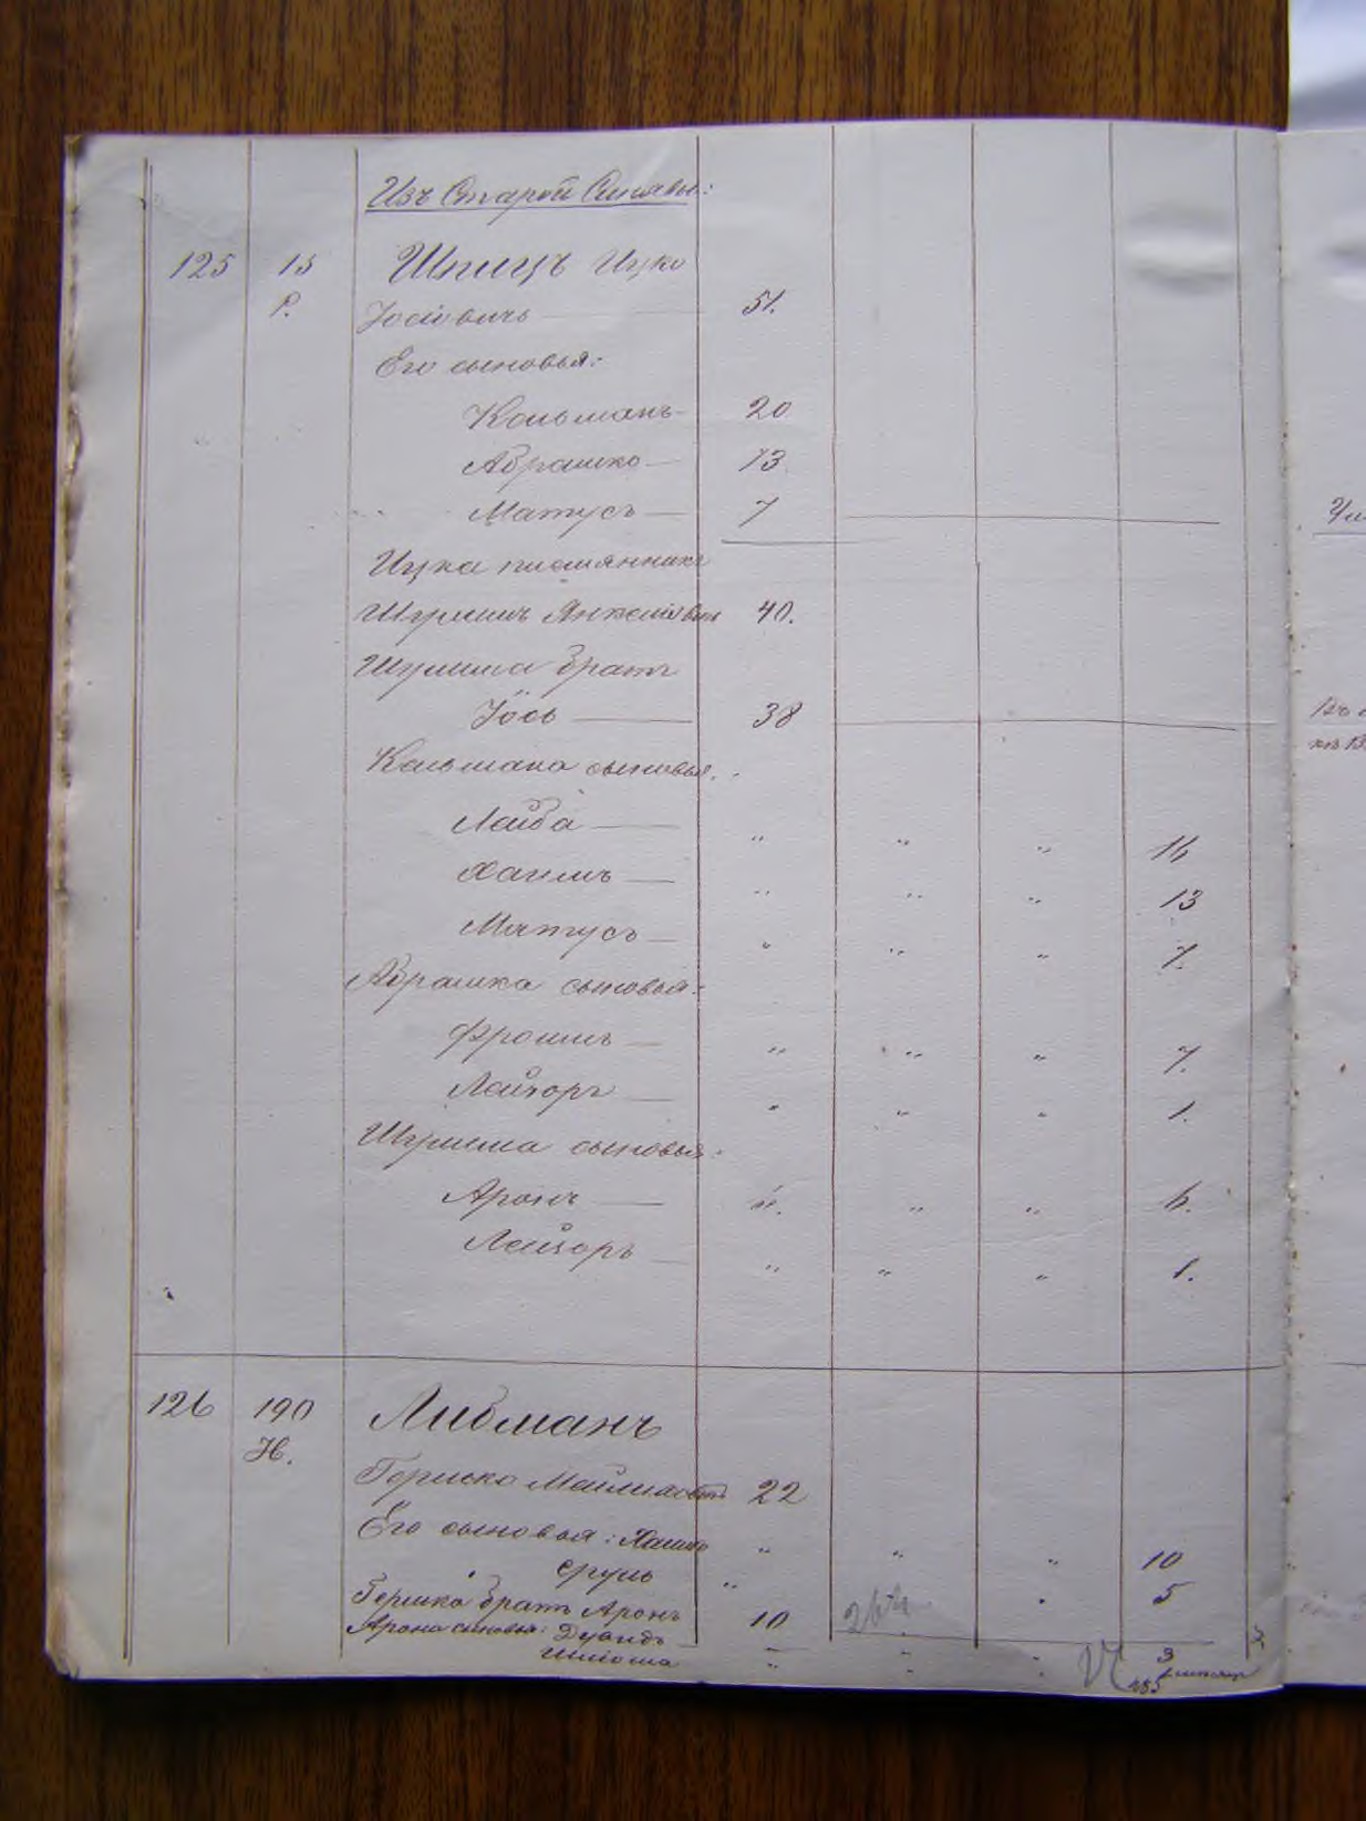 Изъ Старой Синявы:
125 15 Шпицъ Ицко
Р. Иосiовичъ 51.
Его сыновья:
Кольманъ 20
Абрашко 13
Матусъ 7
Ицка племянникъ
Шулимъ Янкелiовичъ 40.
Шулима братъ
Іось 38
Кольмана сыновья:
Лейба " " " 16
Хаимъ " " " 13
Матусъ " " " 7.
Абрашка сыновья:
Фроимъ " " " 7.
Лейзоръ " " " 1.
Шулима сыновья:
Аронъ " " " 6.
Лейзоръ " " " 1.
126 190 Либманъ
Н. Гершко 22
Его сыновья: " " " 10
Сруль " " 5
Гершка братъ Аронъ 10
Арона сыновья: 3
Шлiома " " "